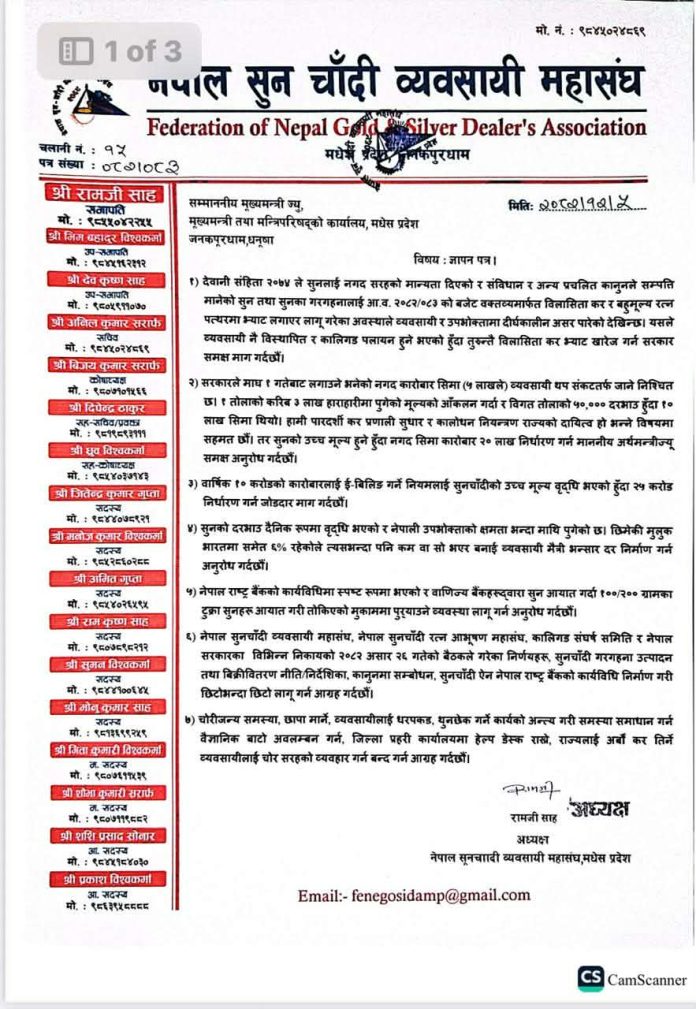 मो. नं. : ९८४५०२४८६९
1 of 3
नेपाल सुन चाँदी व्यवसायी महासंघ
Federation of Nepal Gold & Silver Dealer's Association
मधेश प्रदेश, जनकपुरधाम
चलानी नं. : १५
पत्र संख्या : ०८२।०८३
मिति: २०८२।१२।५
श्री रामजी साह
सभापति
मो. : ९८५५०४२२५५
श्री भिम बहादुर विश्वकर्मा
उप-सभापति
मो. : ९८४५१६२३१२
श्री देव कृष्ण साह
उप-सभापति
मो. : ९८०५९११०७०
श्री अनिल कुमार सर्राफ
सचिव
मो. : ९८४५०२४८६९
श्री बिजय कुमार सर्राफ
कोषाध्यक्ष
मो. : ९८०७०१५६६
श्री दिपेन्द्र ठाकुर
सह-सचिव/प्रवक्ता
मो. : ९८१९८९३१११
श्री ध्रुव विश्वकर्मा
सह-कोषाध्यक्ष
मो. : ९८५४०३७१४३
श्री जितेन्द्र कुमार गुप्ता
सदस्य
मो. : ९८४४०७८९२१
श्री मनोज कुमार विश्वकर्मा
सदस्य
मो. : ९८५२८६०२८८
श्री अमित गुप्ता
सदस्य
मो. : ९८५४०२६५९५
श्री राम कृष्ण साह
सदस्य
मो. : ९८०७८९८२१२
श्री सुमन विश्वकर्मा
सदस्य
मो. : ९८४४१००६४५
श्री मोनु कुमार साह
सदस्य
मो. : ९८१३६९९२५९
श्री गिता कुमारी विश्वकर्मा
म. सदस्य
मो. : ९८०७६११५३९
श्री शोभा कुमारी सर्राफ
म. सदस्य
मो. : ९८०७११९८८२
श्री शशि प्रसाद सोनार
आ. सदस्य
मो. : ९८४५१८४०३०
श्री प्रकाश विश्वकर्मा
आ. सदस्य
मो. : ९८६३९५८८८८
सम्माननीय मुख्यमन्त्री ज्यु,
मुख्यमन्त्री तथा मन्त्रिपरिषद्को कार्यालय, मधेस प्रदेश
जनकपुरधाम,धनुषा
विषय : ज्ञापन पत्र।
१) देवानी संहिता २०७४ ले सुनलाई नगद सरहको मान्यता दिएको र संविधान र अन्य प्रचलित कानुनले सम्पति
मानेको सुन तथा सुनका गरगहनालाई आ.व. २०८२/०८३ को बजेट वक्तव्यमार्फत विलासिता कर र बहुमूल्य रत्न
पत्थरमा भ्याट लगाएर लागू गरेका अवस्थाले व्यवसायी र उपभोक्तामा दीर्घकालीन असर पारेको देखिन्छ। यसले
व्यवसायी नै विस्थापित र कालिगड पलायन हुने भएको हुँदा तुरुन्तै विलासिता कर भ्याट खारेज गर्न सरकार
समक्ष माग गर्दछौं।
२) सरकारले माघ १ गतेबाट लगाउने भनेको नगद कारोबार सिमा (५ लाखले) व्यवसायी थप संकटतर्फ जाने निश्चित
छ। १ तोलाको करिब ३ लाख हाराहारीमा पुगेको मूल्यको आँकलन गर्दा र विगत तोलाको ५०,००० दरभाउ हुँदा १०
लाख सिमा थियो। हामी पारदर्शी कर प्रणाली सुधार र कालोधन नियन्त्रण राज्यको दायित्व हो भन्ने विषयमा
सहमत छौं। तर सुनको उच्च मूल्य हुने हुँदा नगद सिमा कारोबार २० लाख निर्धारण गर्न माननीय अर्थमन्त्रीज्यू
समक्ष अनुरोध गर्दछौं।
३) वार्षिक १० करोडको कारोबारलाई ई-बिलिङ गर्ने नियमलाई सुनचाँदीको उच्च मूल्य वृद्धि भएको हुँदा २५ करोड
निर्धारण गर्न जोडदार माग गर्दछौं।
४) सुनको दरभाउ दैनिक रूपमा वृद्धि भएको र नेपाली उपभोक्ताको क्षमता भन्दा माथि पुगेको छ। छिमेकी मुलुक
भारतमा समेत ६% रहेकोले त्यसभन्दा पनि कम वा सो भएर बनाई व्यवसायी मैत्री भन्सार दर निर्माण गर्न
अनुरोध गर्दछौं।
५) नेपाल राष्ट्र बैंकको कार्यविधिमा स्पष्ट रूपमा भएको र वाणिज्य बैंकहरूद्वारा सुन आयात गर्दा १००/२०० ग्रामका
टुक्रा सुनहरू आयात गरी तोकिएको मुकाममा पुर्‍याउने व्यवस्था लागू गर्न अनुरोध गर्दछौं।
६) नेपाल सुनचाँदी व्यवसायी महासंघ, नेपाल सुनचाँदी रत्न आभूषण महासंघ, कालिगड संघर्ष समिति र नेपाल
सरकारका विभिन्न निकायको २०८२ असार २६ गतेको बैठकले गरेका निर्णयहरू, सुनचाँदी गरगहना उत्पादन
तथा बिक्रीवितरण नीति/निर्देशिका, कानुनमा सम्बोधन, सुनचाँदी ऐन नेपाल राष्ट्र बैंकको कार्यविधि निर्माण गरी
छिटोभन्दा छिटो लागू गर्न आग्रह गर्दछौं।
७) चोरीजन्य समस्या, छापा मार्ने, व्यवसायीलाई धरपकड, थुनछेक गर्ने कार्यको अन्त्य गरी समस्या समाधान गर्न
वैज्ञानिक बाटो अवलम्बन गर्न, जिल्ला प्रहरी कार्यालयमा हेल्प डेस्क राख्ने, राज्यलाई अर्बौं कर तिर्ने
व्यवसायीलाई चोर सरहको व्यवहार गर्न बन्द गर्न आग्रह गर्दछौं।
अध्यक्ष
रामजी साह
अध्यक्ष
नेपाल सूनचाादी व्यवसायी महासंघ,मधेस प्रदेश
Email:- fenegosidamp@gmail.com
CS CamScanner